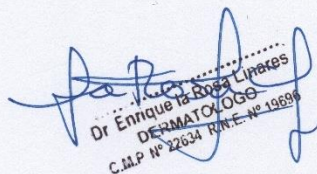 Dr Enrique la Rosa Linares
DERMATOLOGO
C.M.P Nº 22634 R.N.E. Nº 19696